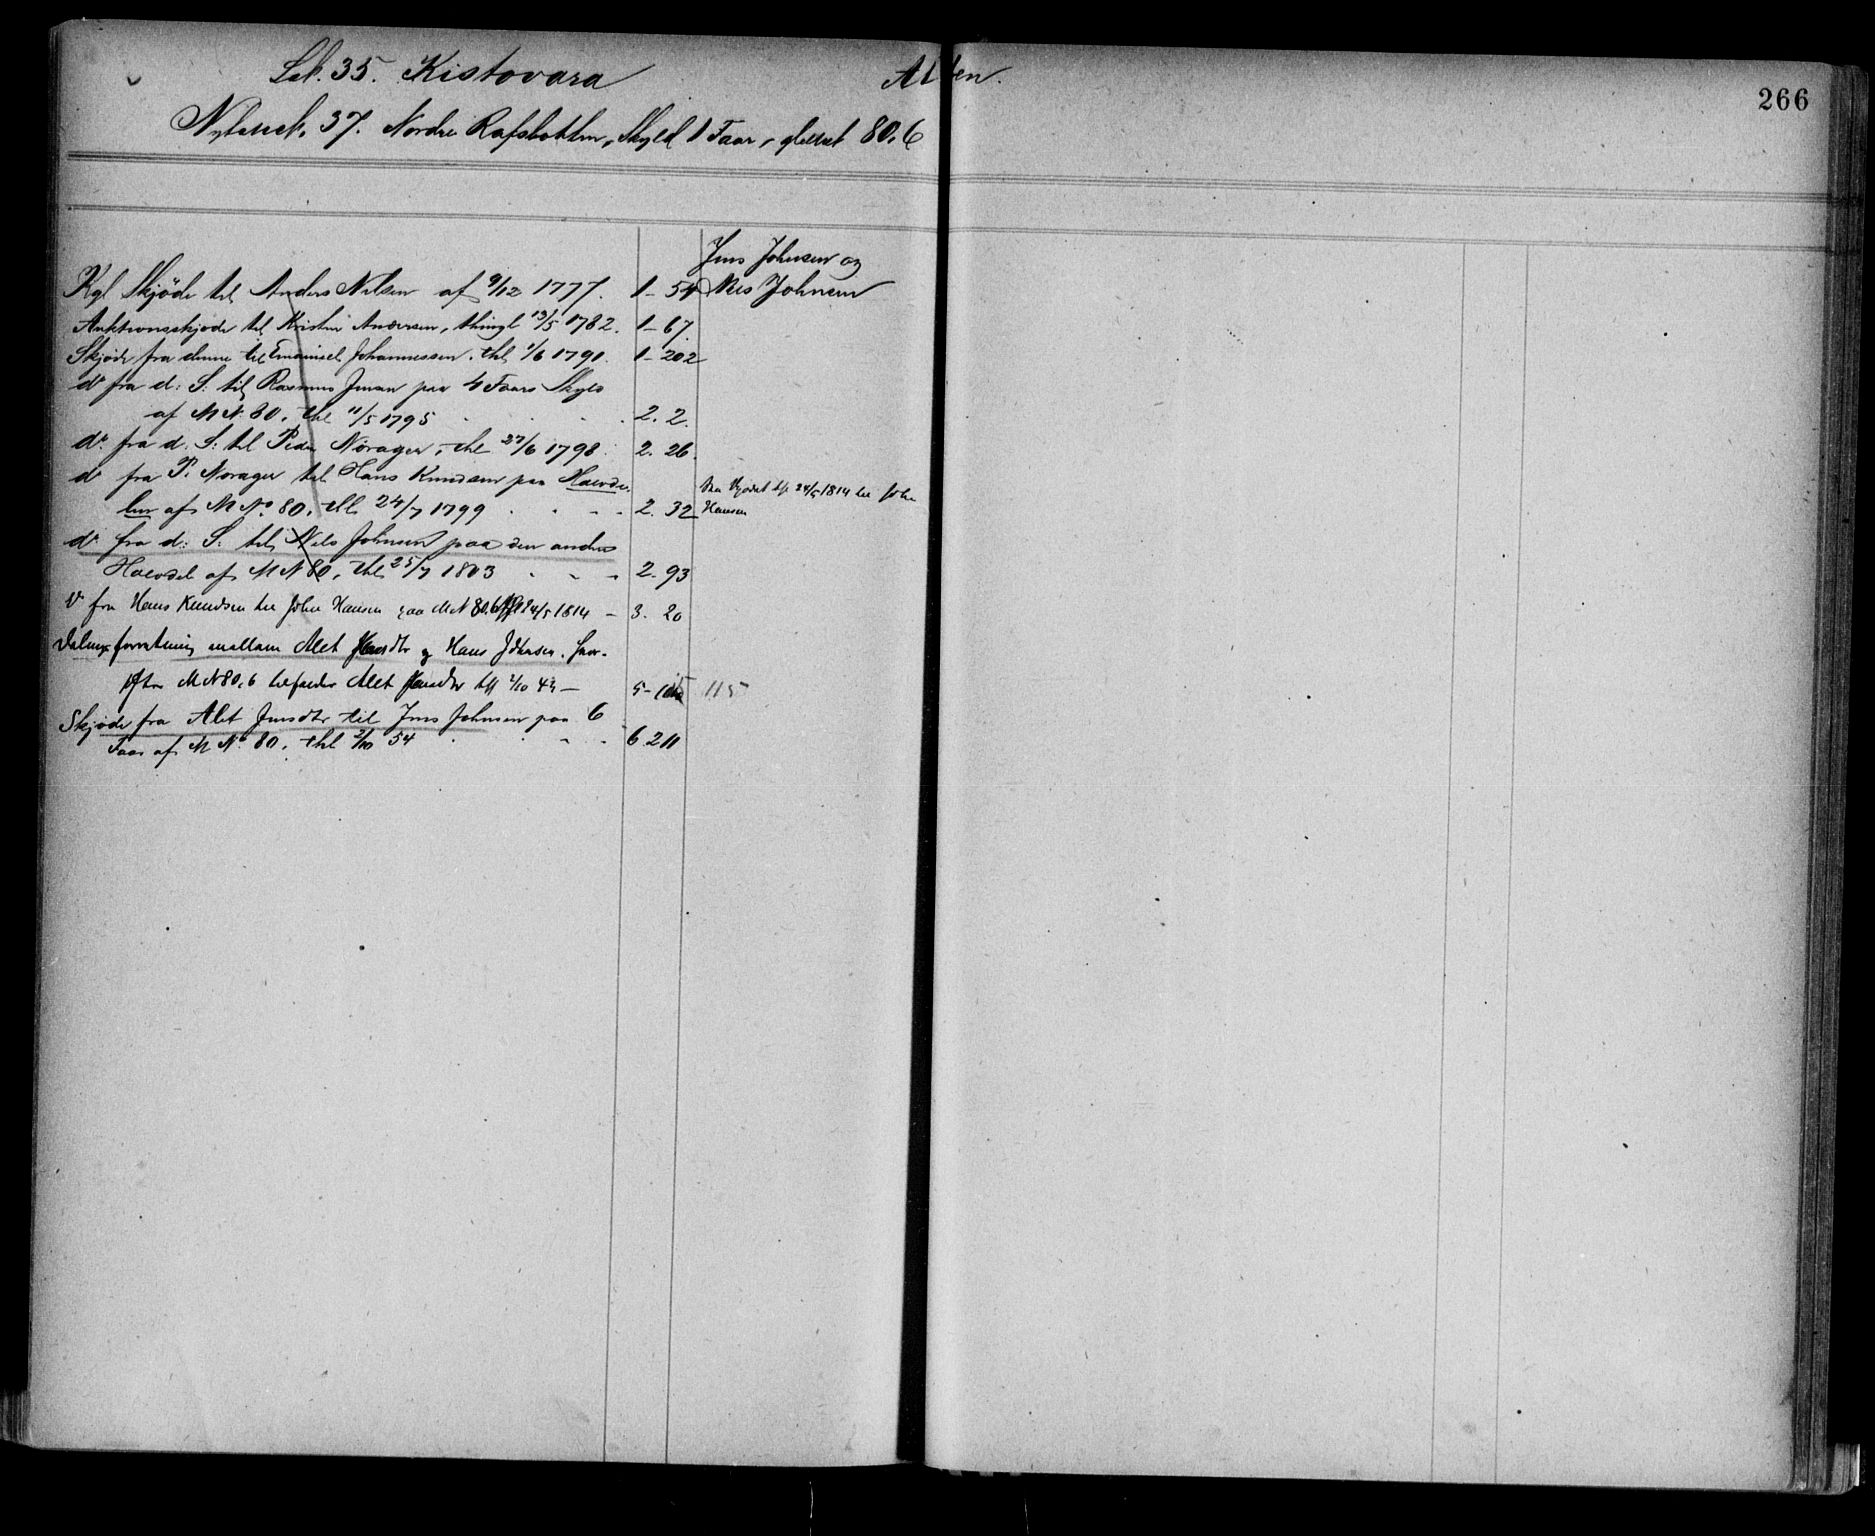 Lit. 35. Kistovara Alten.
266
37. Nordre Rafsbotten, Skyld 1 Faar, 80,6
Jens Johnsen og
Kgl Skjöde til Anders Nilsen af 9/12 1777. 1-54 Nils Johnsen
Auktionsskjøde til Kristen Andersen, thingl 13/5 1782. 1-67.
Skjöde fra denne til Emanuel Johannessen. thl 1/6 1790. 1-202
do fra d: S: til Rasmus Jensen paa 4 Faars Skyld
af M N. 80. thl 11/5 1795 2. 2.
do. fra d. S: til Peder Norager, thl 27/6 1798. 2. 26.
do fra P. Norager til Hans Knudsen paa Halvde
len af M No. 80. thl. 24/7 1799 2. 32 24/5 1814 til John
Hansen
do. fra d: S: til Nils Johnsen paa den anden
Halvdel af M N 80, thl 25/7 1803 2. 93
Do fra Hans Knudsen til John Hansen paa M N 80.6 24/5 1814 – 3. 20
forretning mellem Alet og Hans Johnsen. hvor-
efter M N 80,6 tilfalder Alet 2/10 43 – 5- 115
Skjøde fra Alet Jensdtr til Jens Johnsen paa 6
Faar af M No 80. thl 2/10 54 6. 211